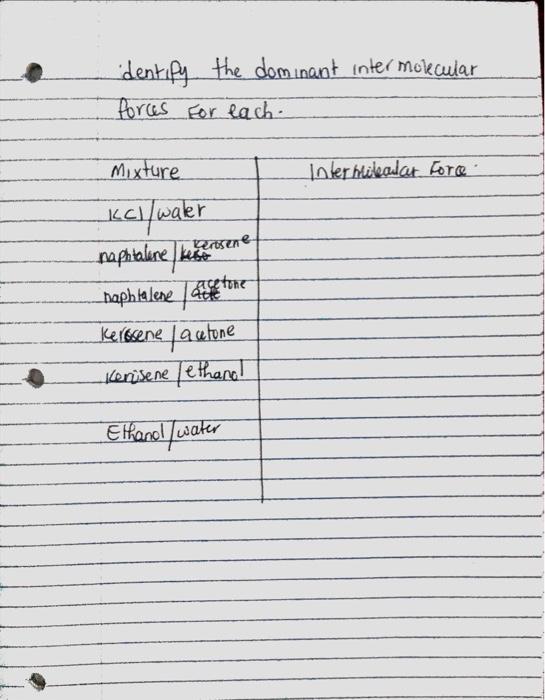 identify the dominant intermolecular
forces For each.
Mixture Intermolecular Force.
KCl/water
naphtalene/kerosene
naphtalene/acetone
Kerosene/acetone
Kerosene/ethanol
Ethanol/water